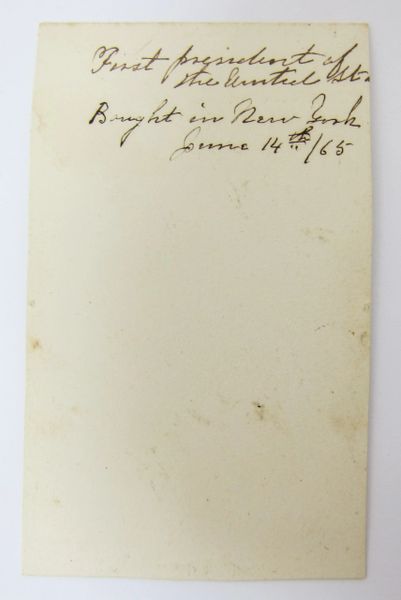 First president of
the United St
Bought in New York
June 14th/65